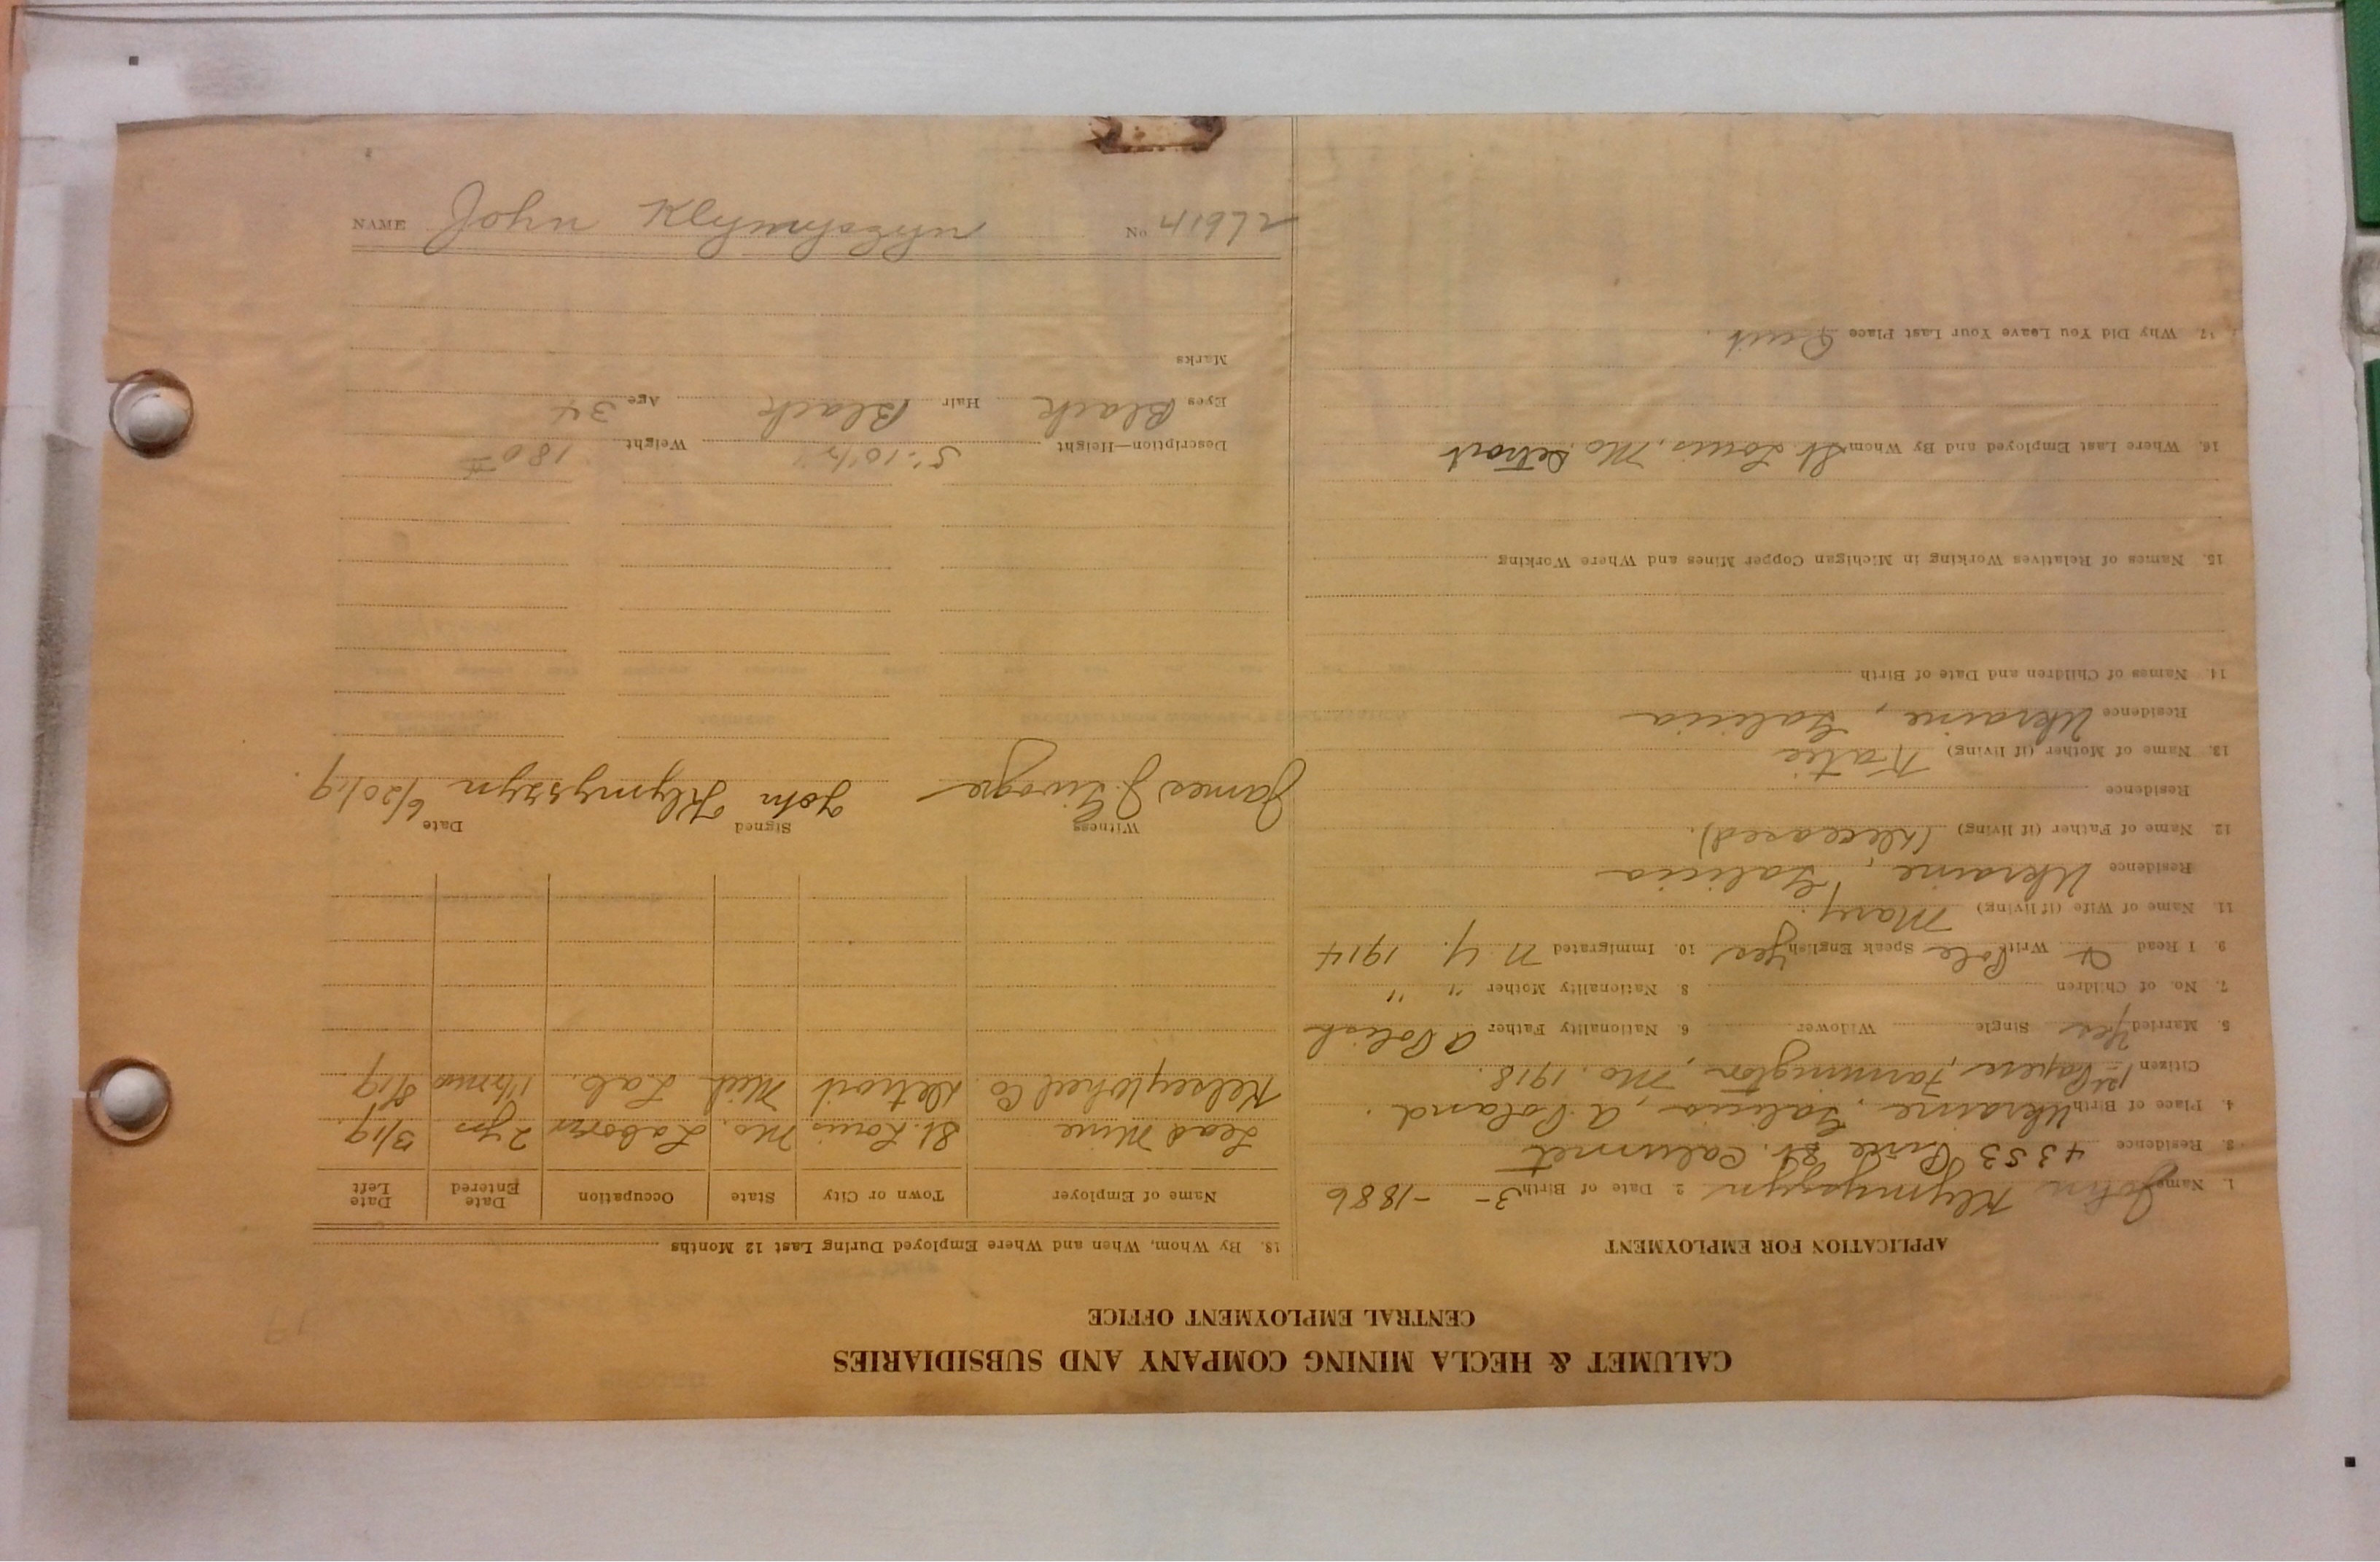 CALUMET & HECLA MINING COMPANY AND SUBSIDIARIES
CENTRAL EMPLOYMENT OFFICE
APPLICATION FOR EMPLOYMENT
1. Name John Klymyszyn 2. Date of Birth -3- -1886
3. Residence 4353 Pine St. Calumet
4. Place of Birth Ukraine, Galicia, A. Poland.
Citizen 1st Papers, Farmington, Mo. 1918.
5. Married Yes Single Widower 6. Nationality Father A Polish
7. No. of Children 8. Nationality Mother " "
9. I Read & Write Pole Speak English Yes 10. Immigrated N.Y. 1914
11. Name of Wife (if living) Mary.
Residence Ukraine, Galicia
12. Name of Father (if living) (Deceased).
Residence
13. Name of Mother (if living) Katie
Residence Ukraine, Galicia
14. Names of Children and Date of Birth
15. Names of Relatives Working in Michigan Copper Mines and Where Working
16. Where Last Employed and By Whom St. Louis, Mo. Detroit
17. Why Did You Leave Your Last Place Quit.
18. By Whom, When and Where Employed During Last 12 Months
Name of Employer Town or City State Occupation Date Entered Date Left
Lead Mine St. Louis Mo. Laborer 2 yrs 3/19.
Kelsey Wheel Co. Detroit Mich Lab. 1½ mos 5/19
Witness Signed Date
James J. John Klymyszyn 6/20/19
Description—Height 5'-10½" Weight 180 #
Eyes Black Hair Black Age 34
Marks
NAME John Klymyszyn No.